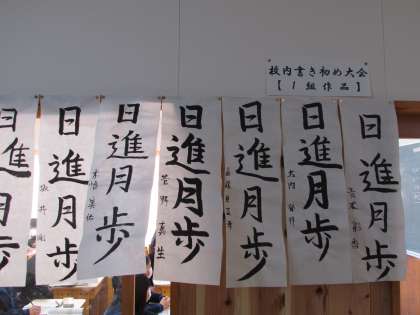 校内書き初め大会
【1組作品】
日進月歩
日進月歩
日進月歩
日進月歩
菅野嘉生
日進月歩
日進月歩
日進月歩